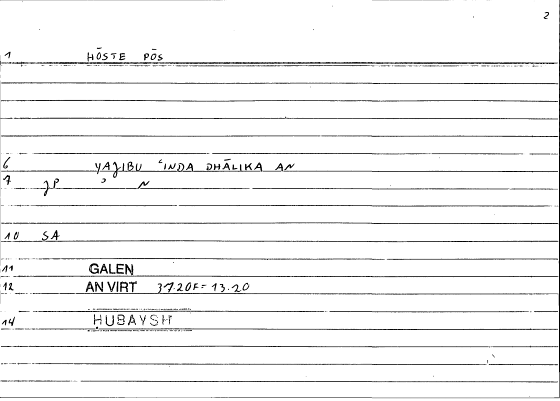 2
1 HŌSTE PŌS
6 YAJIBU ʿINDA DHĀLIKA AN
7 JP ʾ N
10 SA
11 GALEN
12 AN VIRT 37.20F = 13.20
14 HUBAYSH